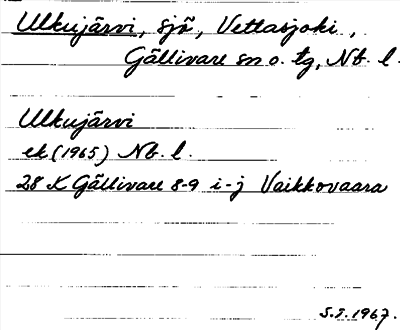 Ulkujärvi, sjö, Vettasjoki,
Gällivare sn o. tg, Nb. l.
Ulkujärvi
ek (1965) Nb. l.
28 K Gällivare 8-9 i-j Vaikkovaara
5.2.1967.